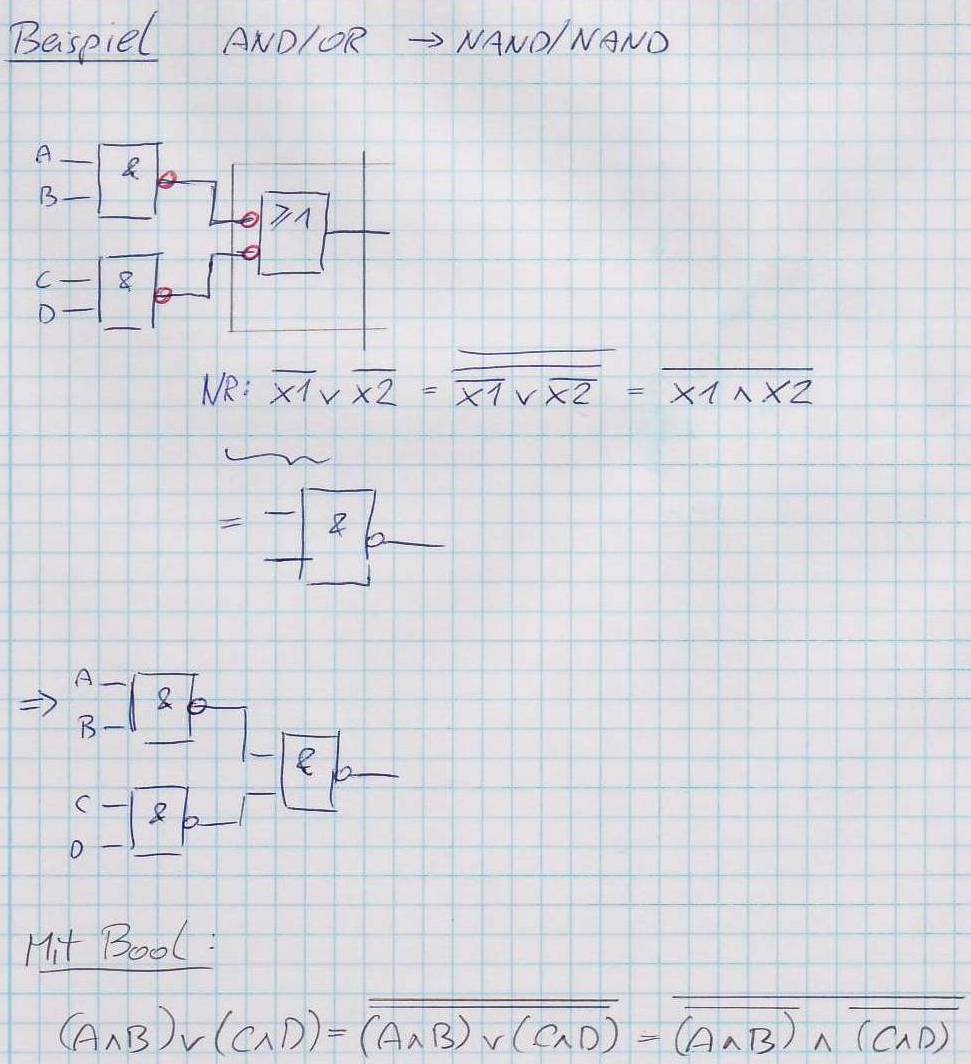 Beispiel AND/OR → NAND/NAND
A
&
B
≥1
C
&
D
NR: x̅1̅ ∨ x̅2̅ = x̿̅1̿̅ ̿∨̿ ̿x̿̅2̿̅ = x̅1̅ ̅∧̅ ̅x̅2̅
= &
⇒ A
&
B
&
C
&
D
Mit Bool:
(A∧B)∨(C∧D) = (̿A̿∧̿B̿)̿ ̿∨̿ ̿(̿C̿∧̿D̿)̿ = (̿A̿∧̿B̿)̿ ̅∧̅ ̅(̿C̿∧̿D̿)̿